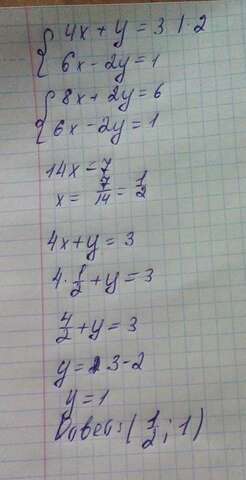 { 4x + y = 3 | · 2
{ 6x - 2y = 1
{ 8x + 2y = 6
{ 6x - 2y = 1
14x = 7
x = 7/14 = 1/2
4x + y = 3
4 · 1/2 + y = 3
4/2 + y = 3
y = 3 - 2
y = 1
Ответ: (1/2; 1)